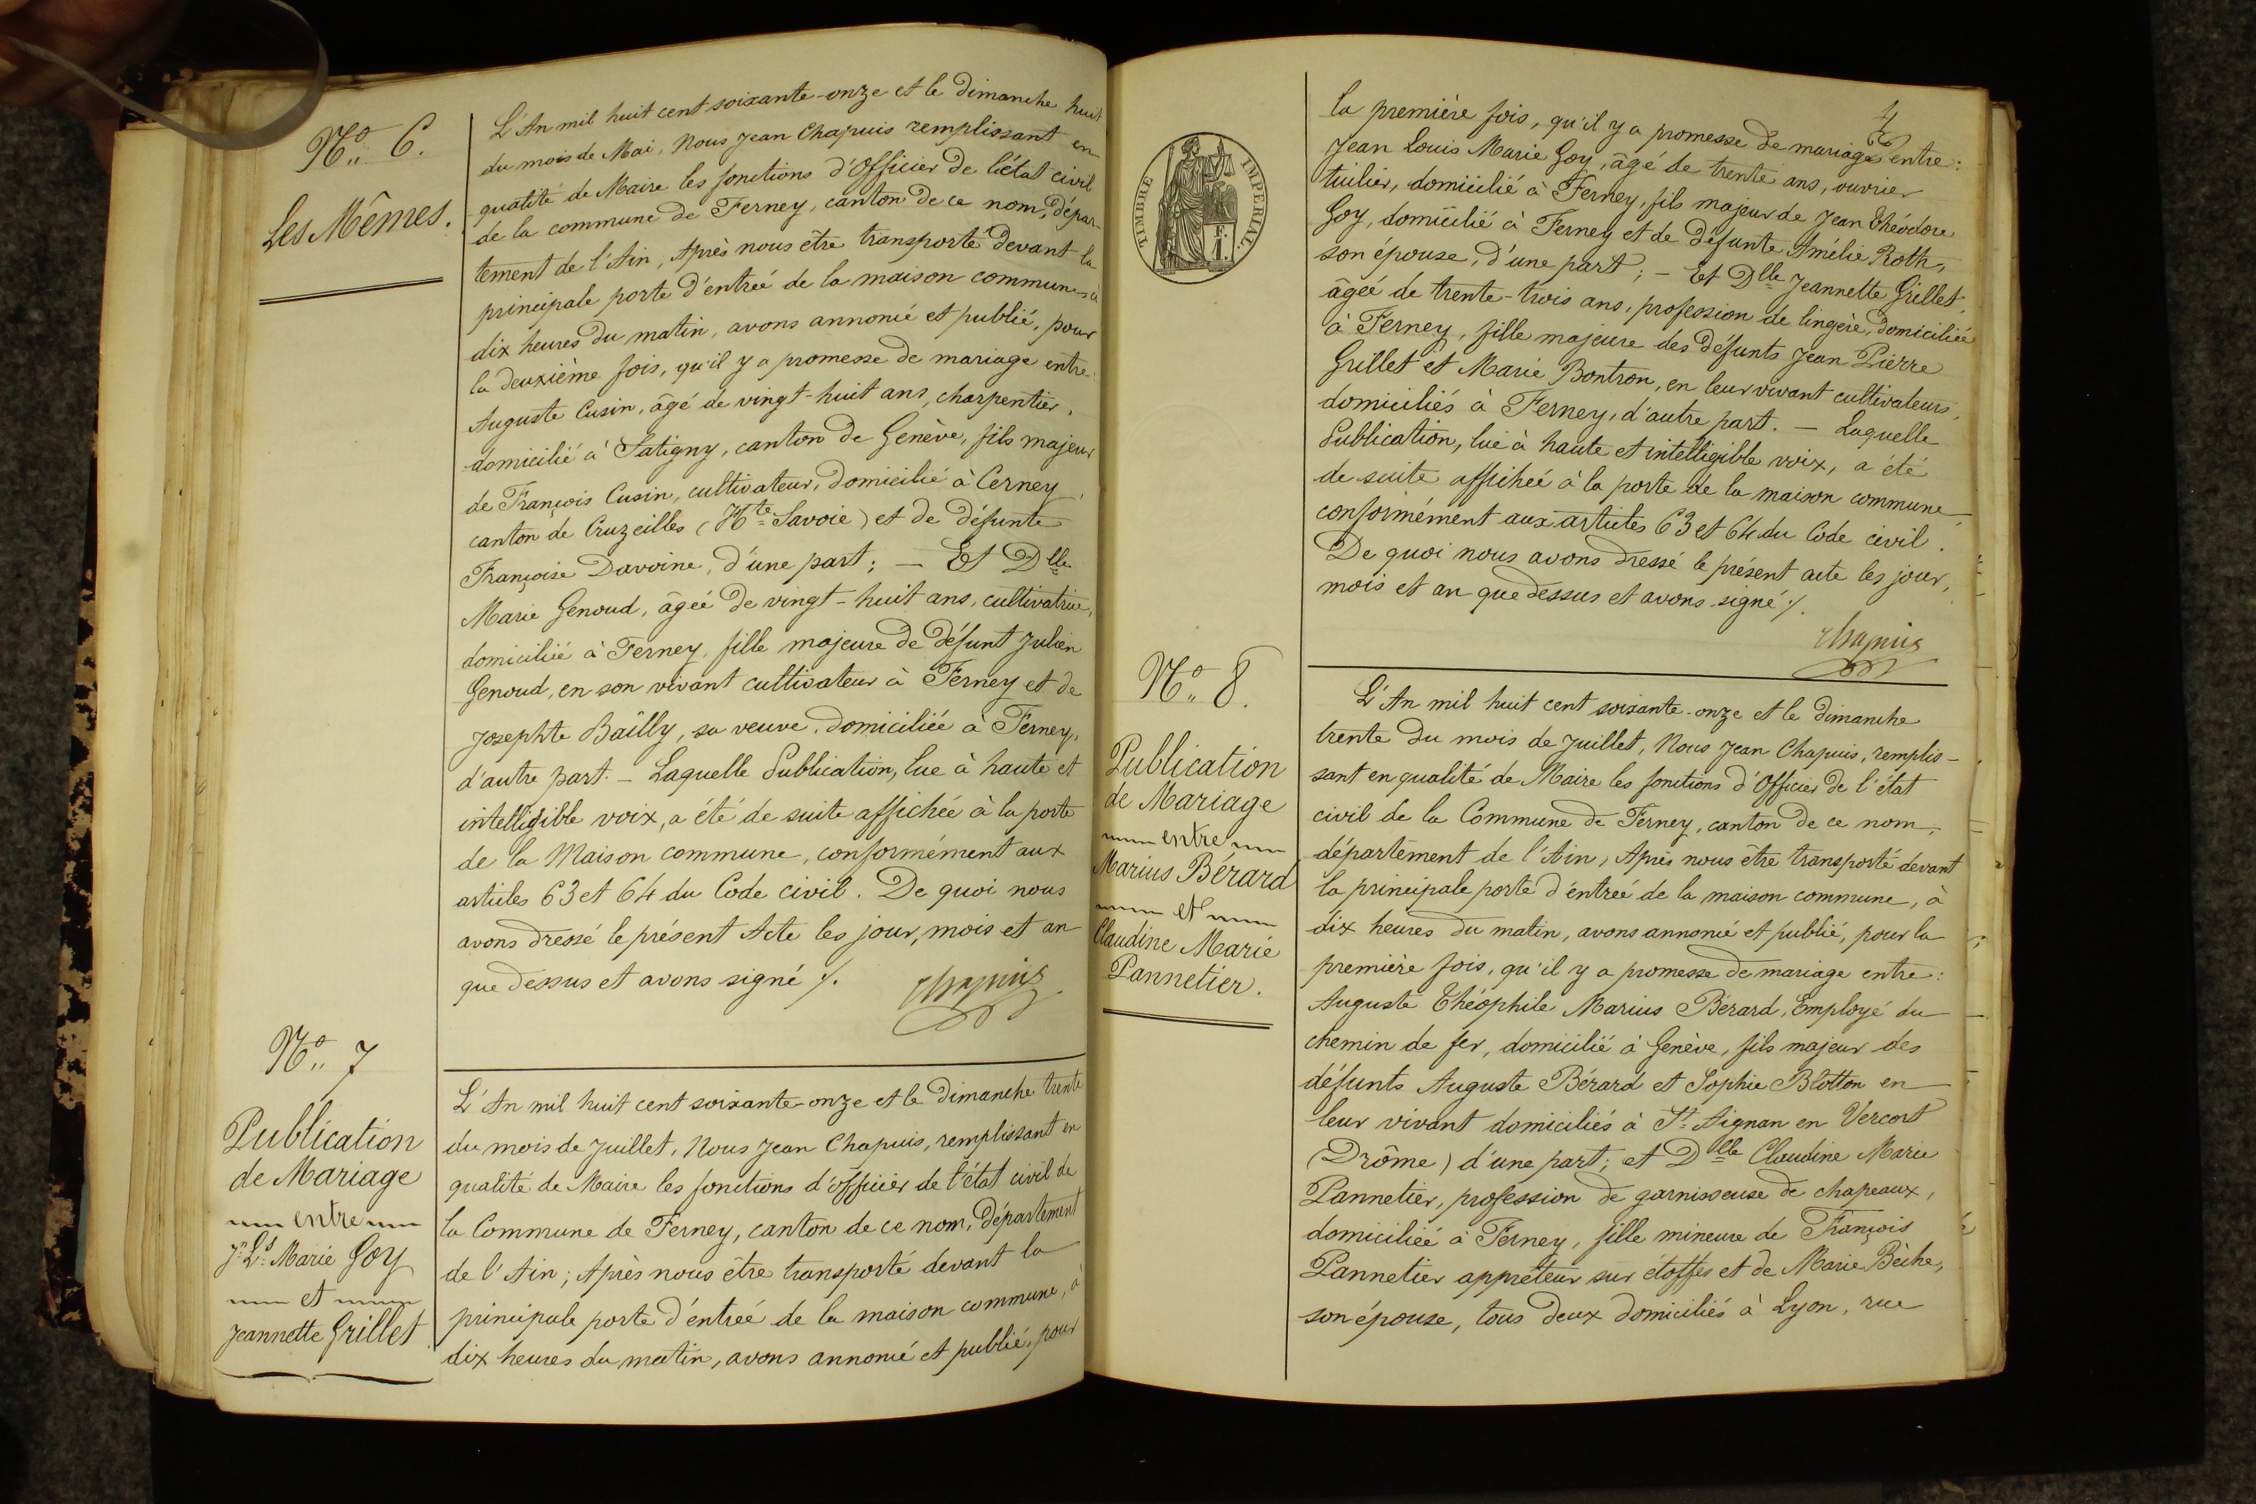 N° 6.
Les Mêmes.
L'An mil huit cent soixante-onze et le dimanche huit
du mois de Mai, Nous Jean Chapuis remplissant en
qualité de Maire les fonctions d'Officier de l'état civil
de la commune de Ferney, canton de ce nom, dépar-
tement de l'Ain, Après nous être transporté devant la
principale porte d'entrée de la maison commune, à
dix heures du matin, avons annoncé et publié, pour
la deuxième fois, qu'il y a promesse de mariage entre:
Auguste Cusin, âgé de vingt-huit ans, charpentier,
domicilié à Satigny, canton de Genève, fils majeur
de François Cusin, cultivateur, domicilié à Cerney,
canton de Cruzeilles (Hte Savoie) et de défunte
Françoise Davoine, d'une part; — Et Dlle
Marie Genoud, âgée de vingt-huit ans, cultivatrice,
domiciliée à Ferney, fille majeure de défunt Julien
Genoud, en son vivant cultivateur à Ferney et de
Josephte Bailly, sa veuve, domiciliée à Ferney,
d'autre part. — Laquelle Publication, lue à haute et
intelligible voix, a été de suite affichée à la porte
de la Maison commune, conformément aux
articles 63 et 64 du Code civil. De quoi nous
avons dressé le présent Acte les jour, mois et an
que dessus et avons signé /.
Chapuis
N° 7
Publication
de Mariage
entre
Jn Ls Marie Goy
et
Jeannette Grillet
L'An mil huit cent soixante-onze et le dimanche trente
du mois de Juillet, Nous Jean Chapuis, remplissant en
qualité de Maire les fonctions d'officier de l'état civil de
la Commune de Ferney, canton de ce nom, département
de l'Ain; Après nous être transporté devant la
principale porte d'entrée de la maison commune, à
dix heures du matin, avons annoncé et publié, pour
TIMBRE IMPERIAL.
4
la première fois, qu'il y a promesse de mariage entre:
Jean Louis Marie Goy, âgé de trente ans, ouvrier
tuilier, domicilié à Ferney, fils majeur de Jean Théodore
Goy, domicilié à Ferney et de défunte Amélie Roth,
son épouse, d'une part; — Et Dlle Jeannette Grillet,
âgée de trente-trois ans, profession de lingère, domiciliée
à Ferney, fille majeure des défunts Jean Pierre
Grillet et Marie Bontron, en leur vivant cultivateurs,
domiciliés à Ferney, d'autre part. — Laquelle
Publication, lue à haute et intelligible voix, a été
de suite affichée à la porte de la maison commune
conformément aux articles 63 et 64 du Code civil.
De quoi nous avons dressé le présent acte les jour,
mois et an que dessus et avons signé /.
Chapuis
N° 8.
Publication
de Mariage
entre
Marius Bérard
et
Claudine Marie
Pannetier.
L'An mil huit cent soixante-onze et le dimanche
trente du mois de Juillet, Nous Jean Chapuis, remplis-
sant en qualité de Maire les fonctions d'Officier de l'état
civil de la Commune de Ferney, canton de ce nom,
département de l'Ain, Après nous être transporté devant
la principale porte d'entrée de la maison commune, à
dix heures du matin, avons annoncé et publié, pour la
première fois, qu'il y a promesse de mariage entre:
Auguste Théophile Marius Bérard, Employé du
chemin de fer, domicilié à Genève, fils majeur des
défunts Auguste Bérard et Sophie Blotton en
leur vivant domiciliés à St Aignan en Vercort
(Drôme) d'une part; et Dlle Claudine Marie
Pannetier, profession de garnisseuse de chapeaux,
domiciliée à Ferney, fille mineure de François
Pannetier appréteur sur étoffes et de Marie Bèche,
son épouse, tous deux domiciliés à Lyon, rue